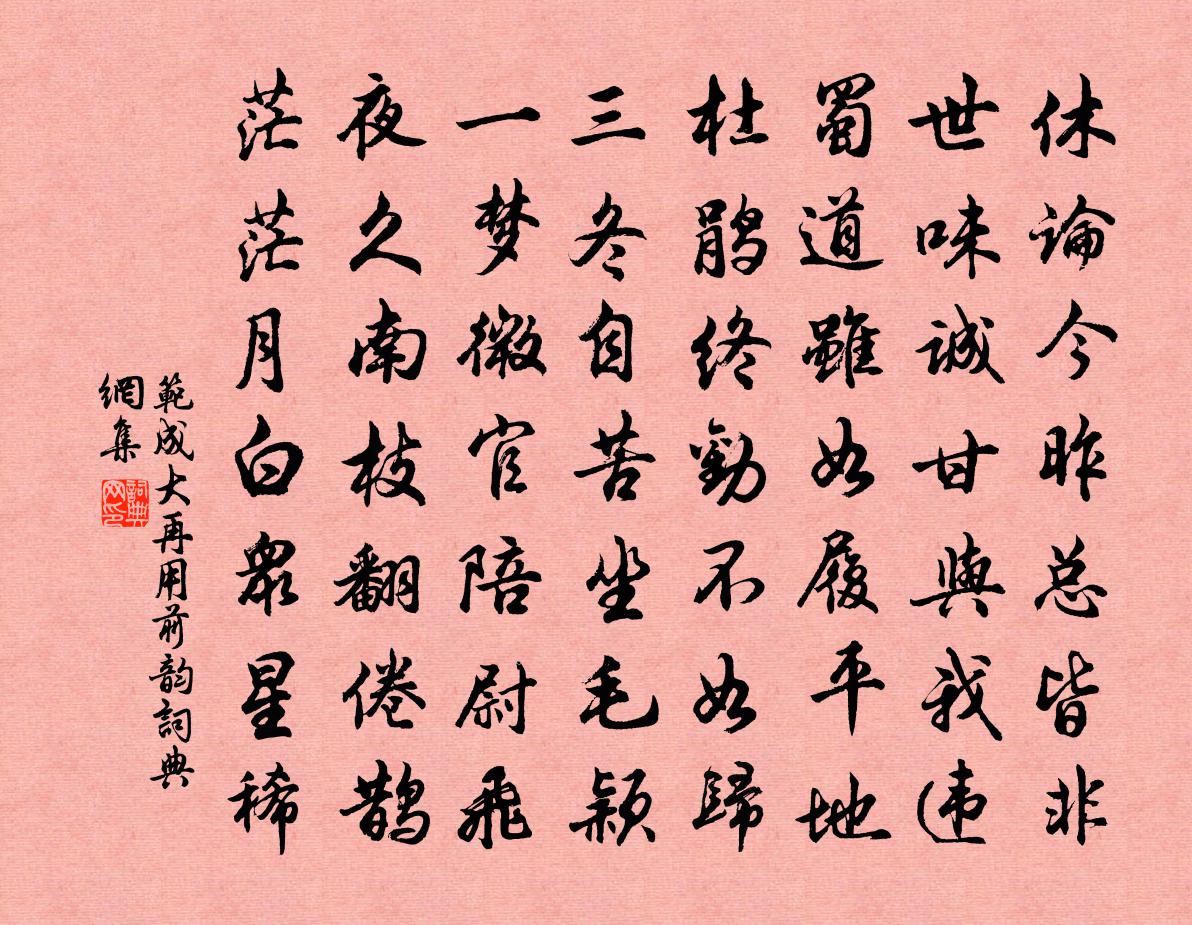 休論今昨总皆非
世味誠甘與我违
蜀道雖如履平地
杜鹃终勸不如歸
三冬自苦坐毛颖
一梦微官陪尉飛
夜久南枝翻倦鹊
茫茫月白眾星稀
範成大再用前韵詞典
網集
詞典
网印